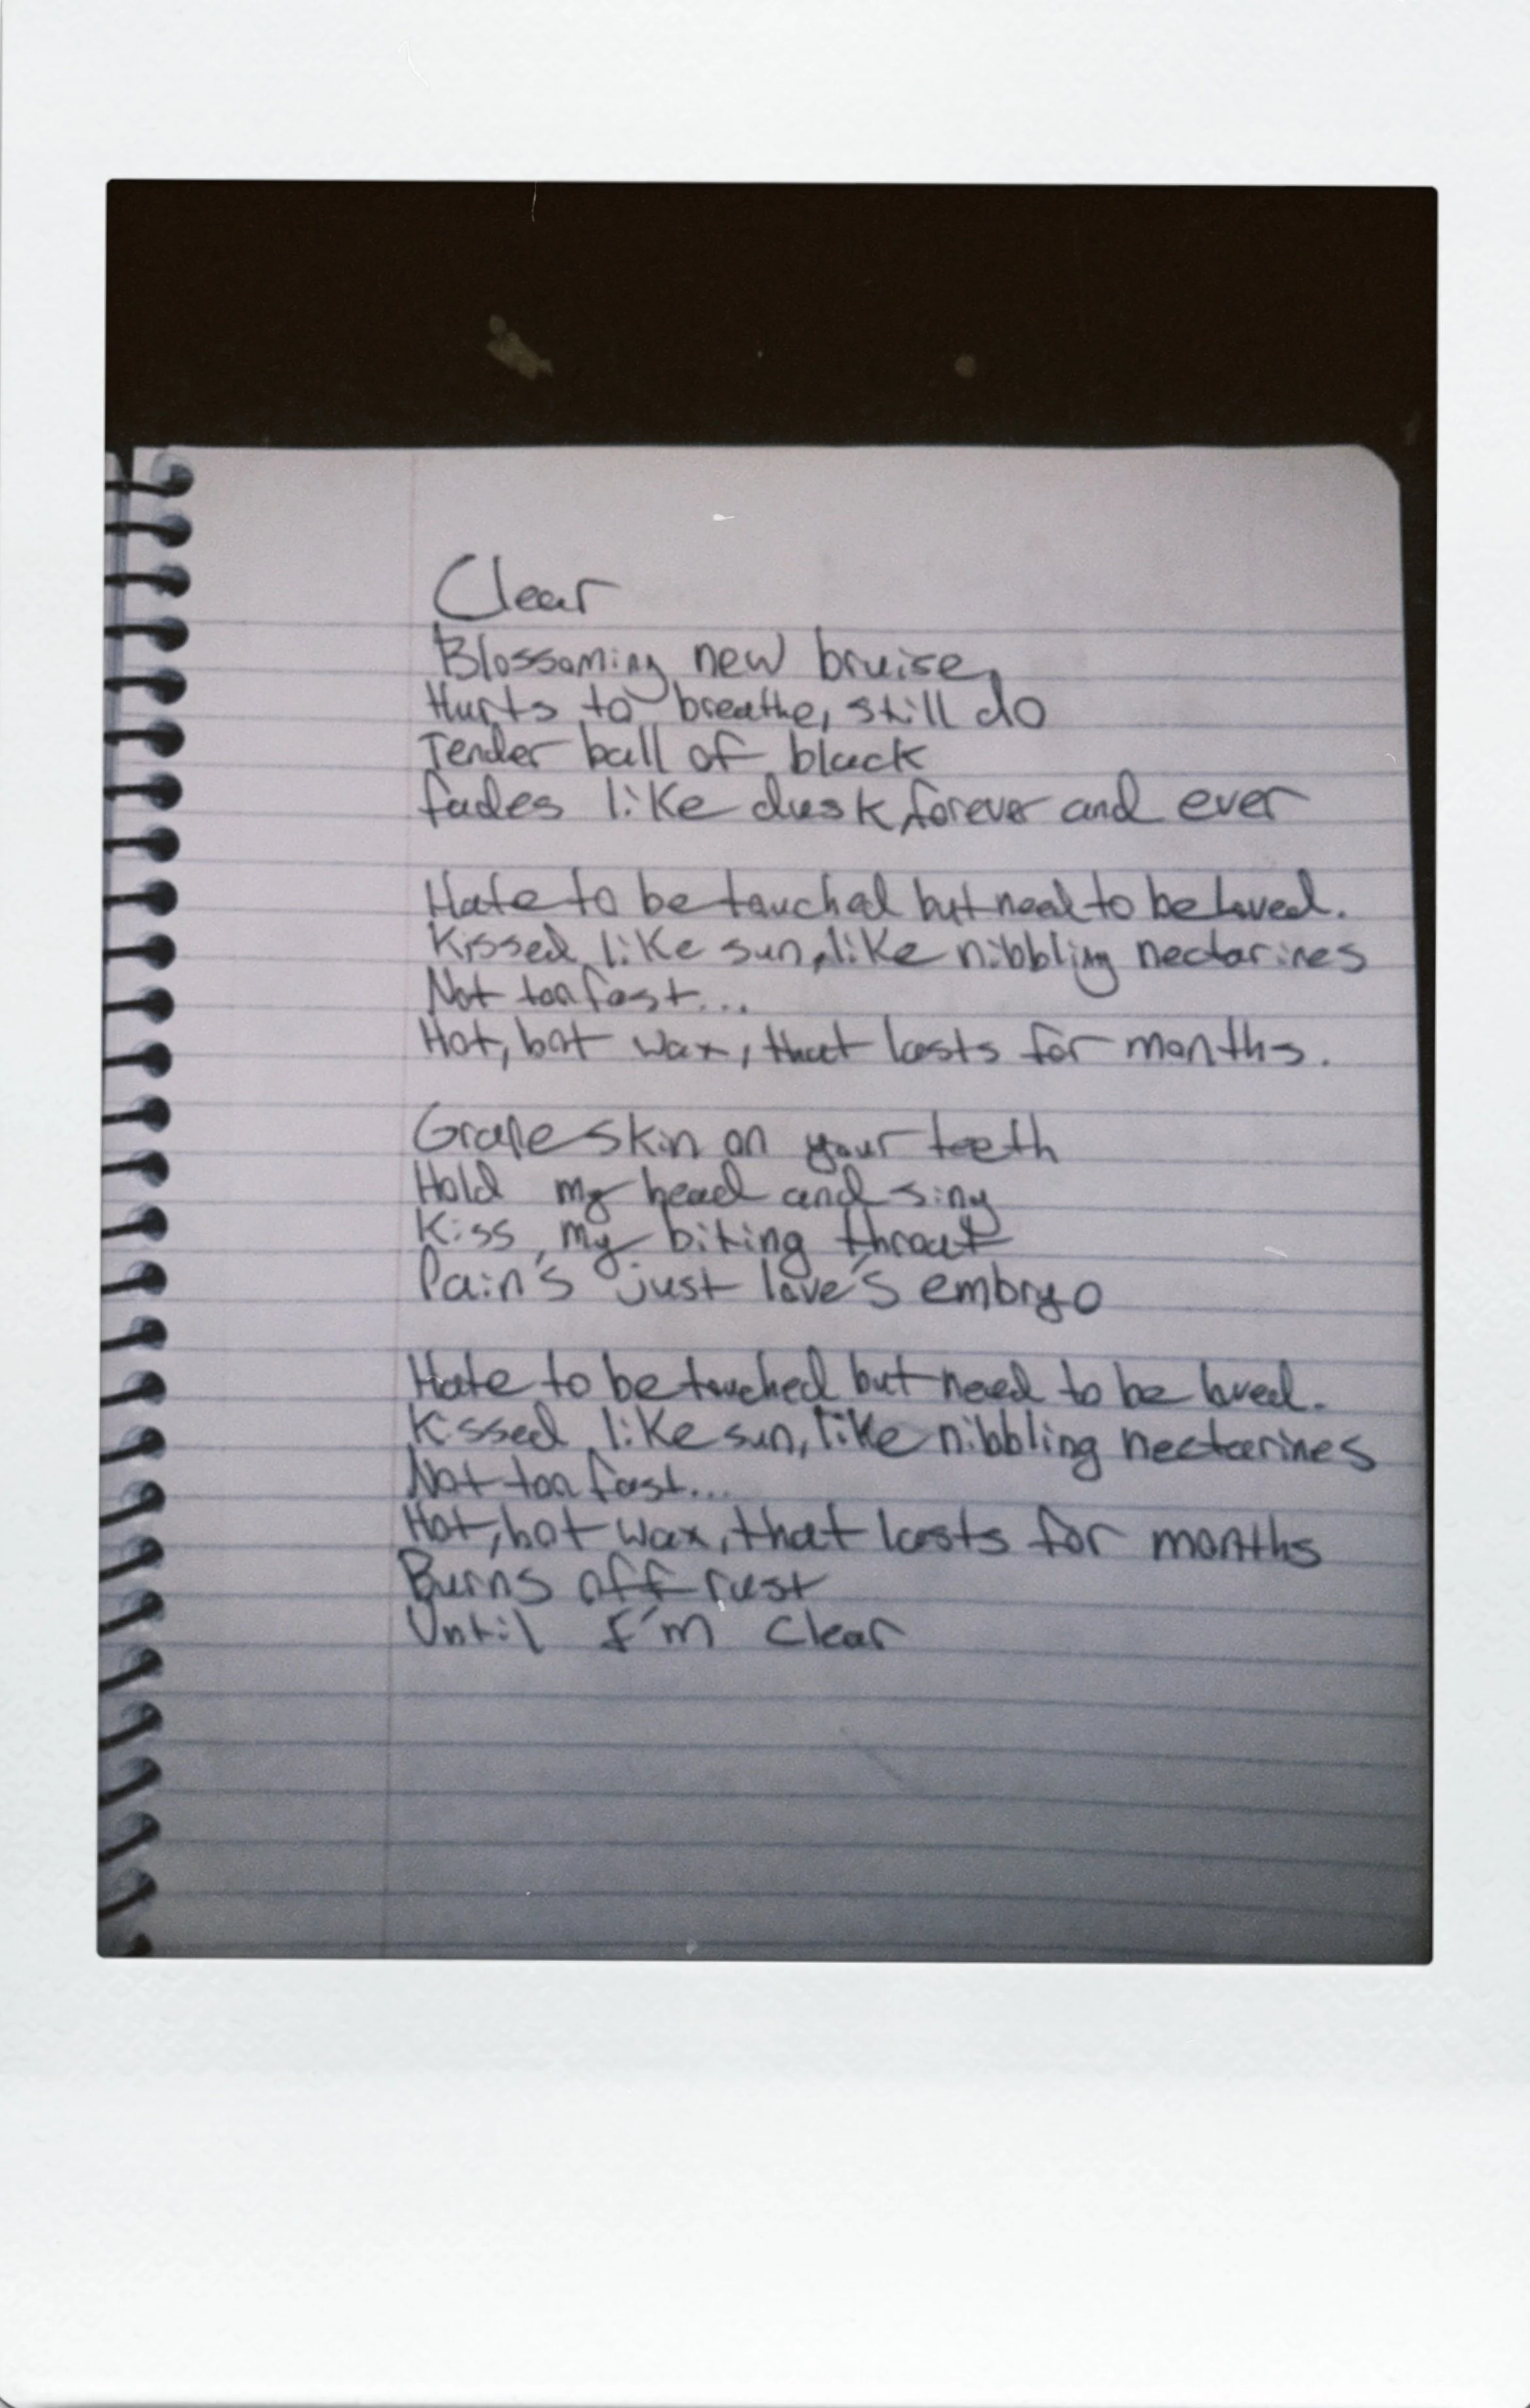 Clear
Blossoming new bruise,
Hurts to breathe, still do
Tender ball of black
fades like dusk, forever and ever
Hate to be touched but need to be loved.
Kissed like sun, like nibbling nectarines
Not too fast...
Hot, hot wax, that lasts for months.
Grape skin on your teeth
Hold my head and sing
Kiss my biting throat
Pain's just love's embryo
Hate to be touched but need to be loved.
Kissed like sun, like nibbling nectarines
Not too fast...
Hot, hot wax, that lasts for months
Burns off rust
Until I'm clear